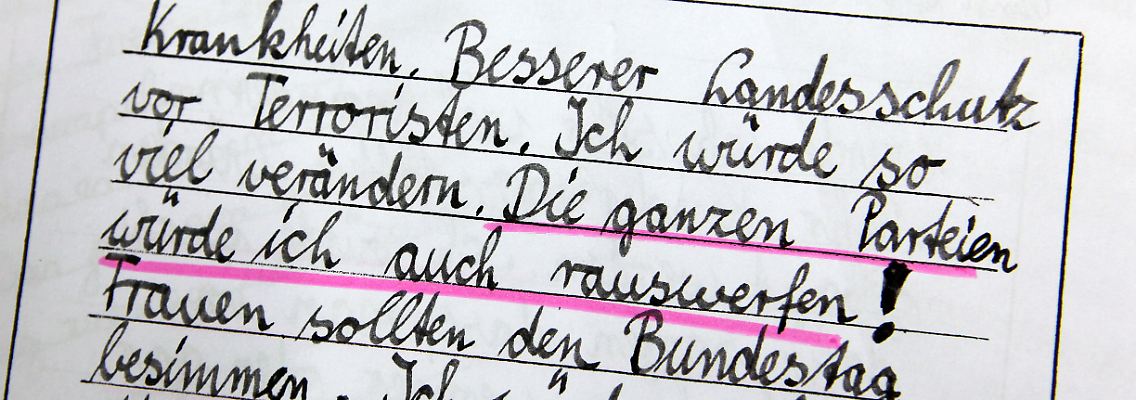 Krankheiten. Besserer Landesschutz
vor Terroristen. Ich würde so
viel verändern. Die ganzen Parteien
würde ich auch rauswerfen!
Frauen sollten den Bundestag
besimmen. Ich